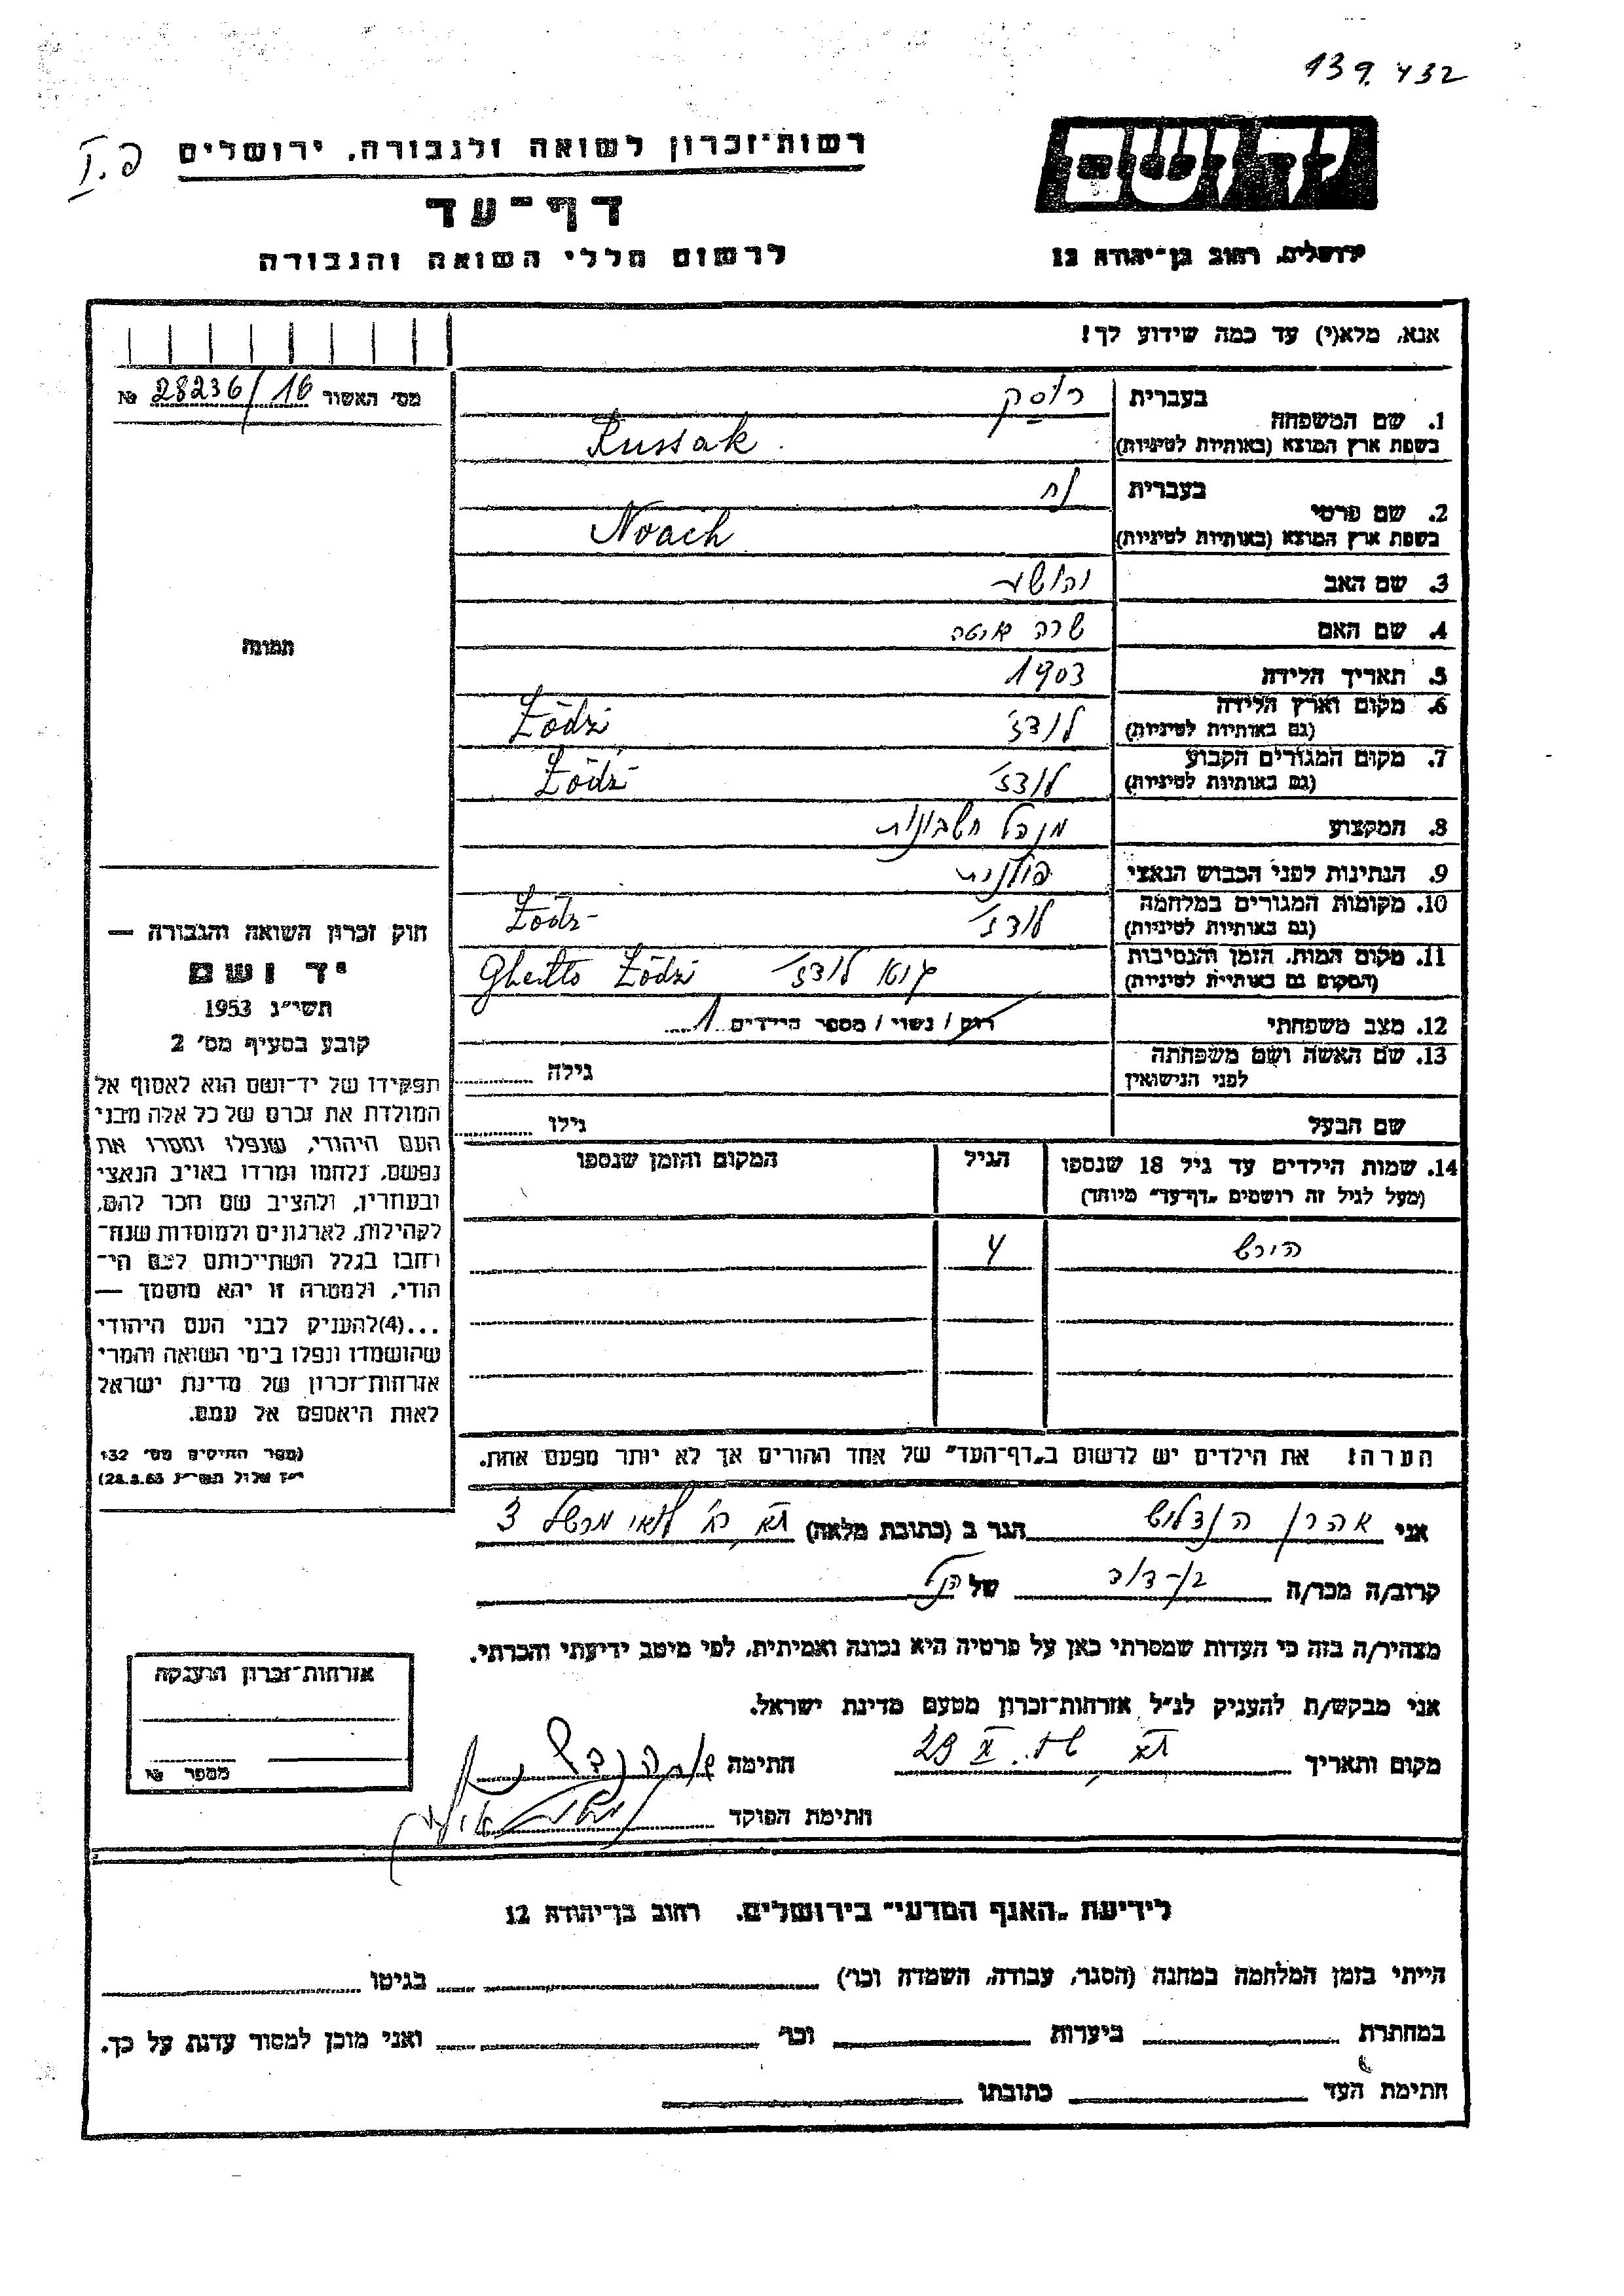 139.432
פ.I
רשות־זכרון לשואה ולגבורה, ירושלים
יד ושם
דף־עד
לרשום חללי השואה והגבורה
ירושלים, רחוב בן־יהודה 12
אנא, מלא(י) עד כמה שידוע לך!
מס׳ האשור 28236/16 №
1. שם המשפחה
בעברית רוסק
בשפת ארץ המוצא (באותיות לטיניות) Russak
2. שם פרטי
בעברית נח
בשפת ארץ המוצא (באותיות לטיניות) Noach
3. שם האב יהושע
4. שם האם שרה
5. תאריך הלידה 1903
6. מקום וארץ הלידה
(גם באותיות לטיניות) לודז׳ Łódź
7. מקום המגורים הקבוע
(גם באותיות לטיניות) לודז׳ Łódź
8. המקצוע מנהל חשבונות
9. הנתינות לפני הכבוש הנאצי פולנית
10. מקומות המגורים במלחמה
(גם באותיות לטיניות) לודז׳ Łódź
11. מקום המות, הזמן והנסיבות
(המקום גם באותיות לטיניות) גטו לודז׳ Ghetto Łódź
12. מצב משפחתי רווק / נשוי / מספר הילדים 1
13. שם האשה ושם משפחתה
לפני הנישואין גילה
שם הבעל גילו
14. שמות הילדים עד גיל 18 שנספו הגיל המקום והזמן שנספו
(מעל לגיל זה רושמים „דף־עד" מיוחד)
הירש 4
תמונה
חוק זכרון השואה והגבורה —
יד ושם
תשי״ג 1953
קובע בסעיף מס׳ 2
תפקידו של יד־ושם הוא לאסוף אל
המולדת את זכרם של כל אלה מבני
העם היהודי, שנפלו ומסרו את
נפשם, נלחמו ומרדו באויב הנאצי
ובעוזריו, ולהציב שם וזכר להם,
לקהילות, לארגונים ולמוסדות שנח־
רחבו בגלל השתייכותם לעם הי־
הודי, ולמטרה זו יהא מוסמך —
...(4)להעניק לבני העם היהודי
שהושמדו ונפלו בימי השואה והמרי
אזרחות־זכרון של מדינת ישראל
לאות היאספם אל עמם.
(ספר החוקים מס׳ 132
י״ז אלול תשי״ג 28.8.53)
הערה: את הילדים יש לרשום ב„דף־העד" של אחד ההורים אך לא יותר מפעם אחת.
אני אהרן הנדליש הגר ב (כתובת מלאה) תא רח׳ לואי מרשל 3
קרוב/ה מכר/ה בן-דוד של הנ״ל
מצהיר/ה בזה כי העדות שמסרתי כאן על פרטיה היא נכונה ואמיתית, לפי מיטב ידיעתי והכרתי.
אני מבקש/ת להעניק לנ״ל אזרחות־זכרון מטעם מדינת ישראל.
מקום ותאריך תא 29 חתימה
חתימת הפוקד
אזרחות־זכרון הוענקה
מספר №
לידיעת „האגף המדעי" בירושלים, רחוב בן־יהודה 12
הייתי בזמן המלחמה במחנה (הסגר, עבודה, השמדה וכו׳) בגיטו
במחתרת ביערות וכו׳ ואני מוכן למסור עדות על כך.
חתימת העד כתובתו